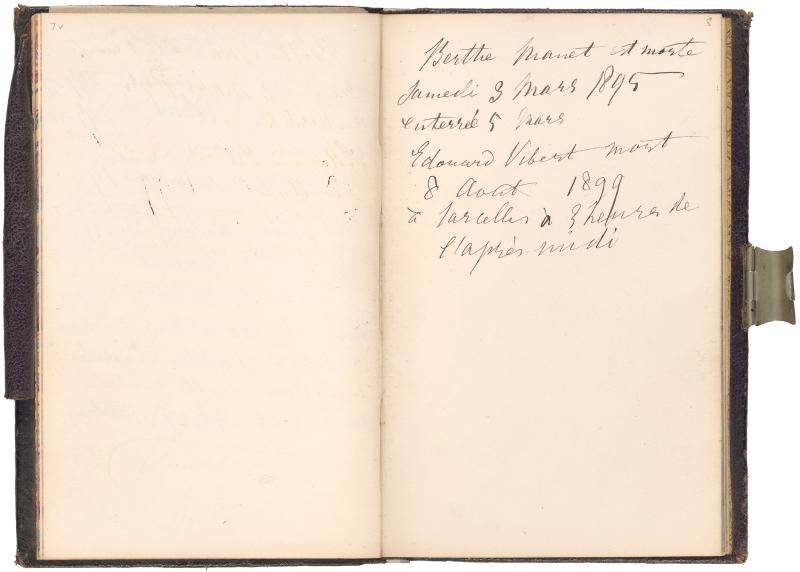 7v
8
Berthe Manet est morte
Samedi 3 Mars 1895
enterrée 5 Mars
Edouard Vibert mort
8 Aout 1899
à Sarcelles à 3 heures de
l'après midi